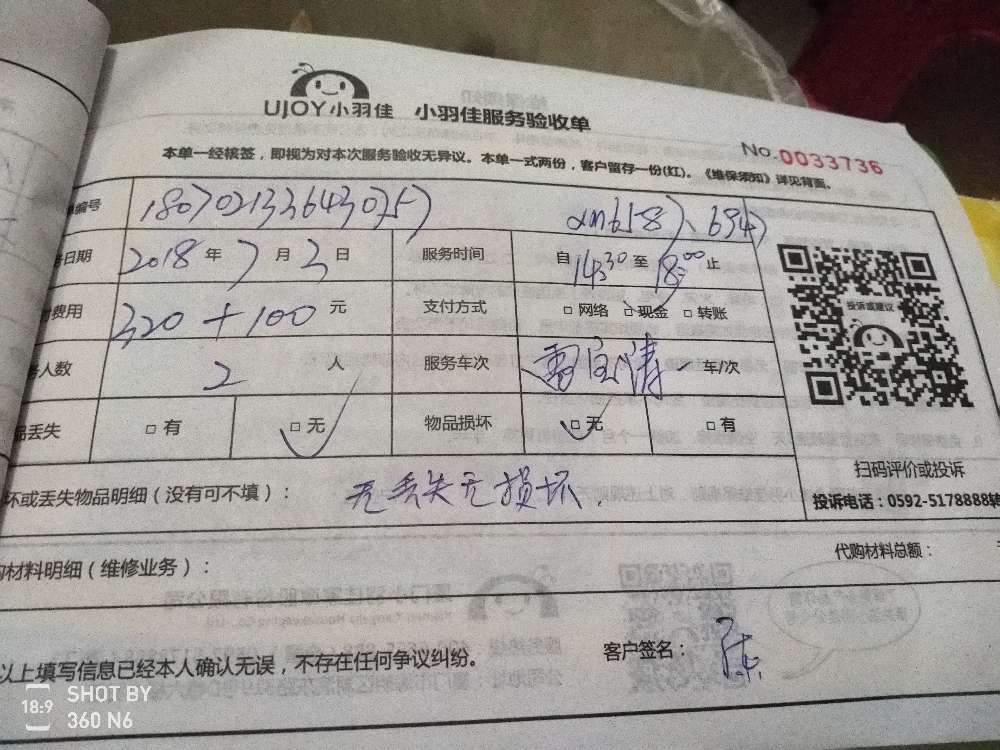 UJOY小羽佳 小羽佳服务验收单
No.0033736
本单一经核签，即视为对本次服务验收无异议。本单一式两份，客户留存一份(红)。《维保须知》详见背面。
单编号 180702133643075)
日期 2018年7月3日 服务时间 自14:30至18:00止
费用 320+100元 支付方式 □网络 □现金 □转账
人数 2人 服务车次 车/次
品丢失 □有 □无 物品损坏 □无 □有
投诉或建议
扫码评价或投诉
投诉电话：0592-5178888转
坏或丢失物品明细（没有可不填）： 无丢失无损坏
代购材料总额：
购材料明细（维修业务）：
以上填写信息已经本人确认无误，不存在任何争议纠纷。 客户签名：陈
18:9 SHOT BY
360 N6